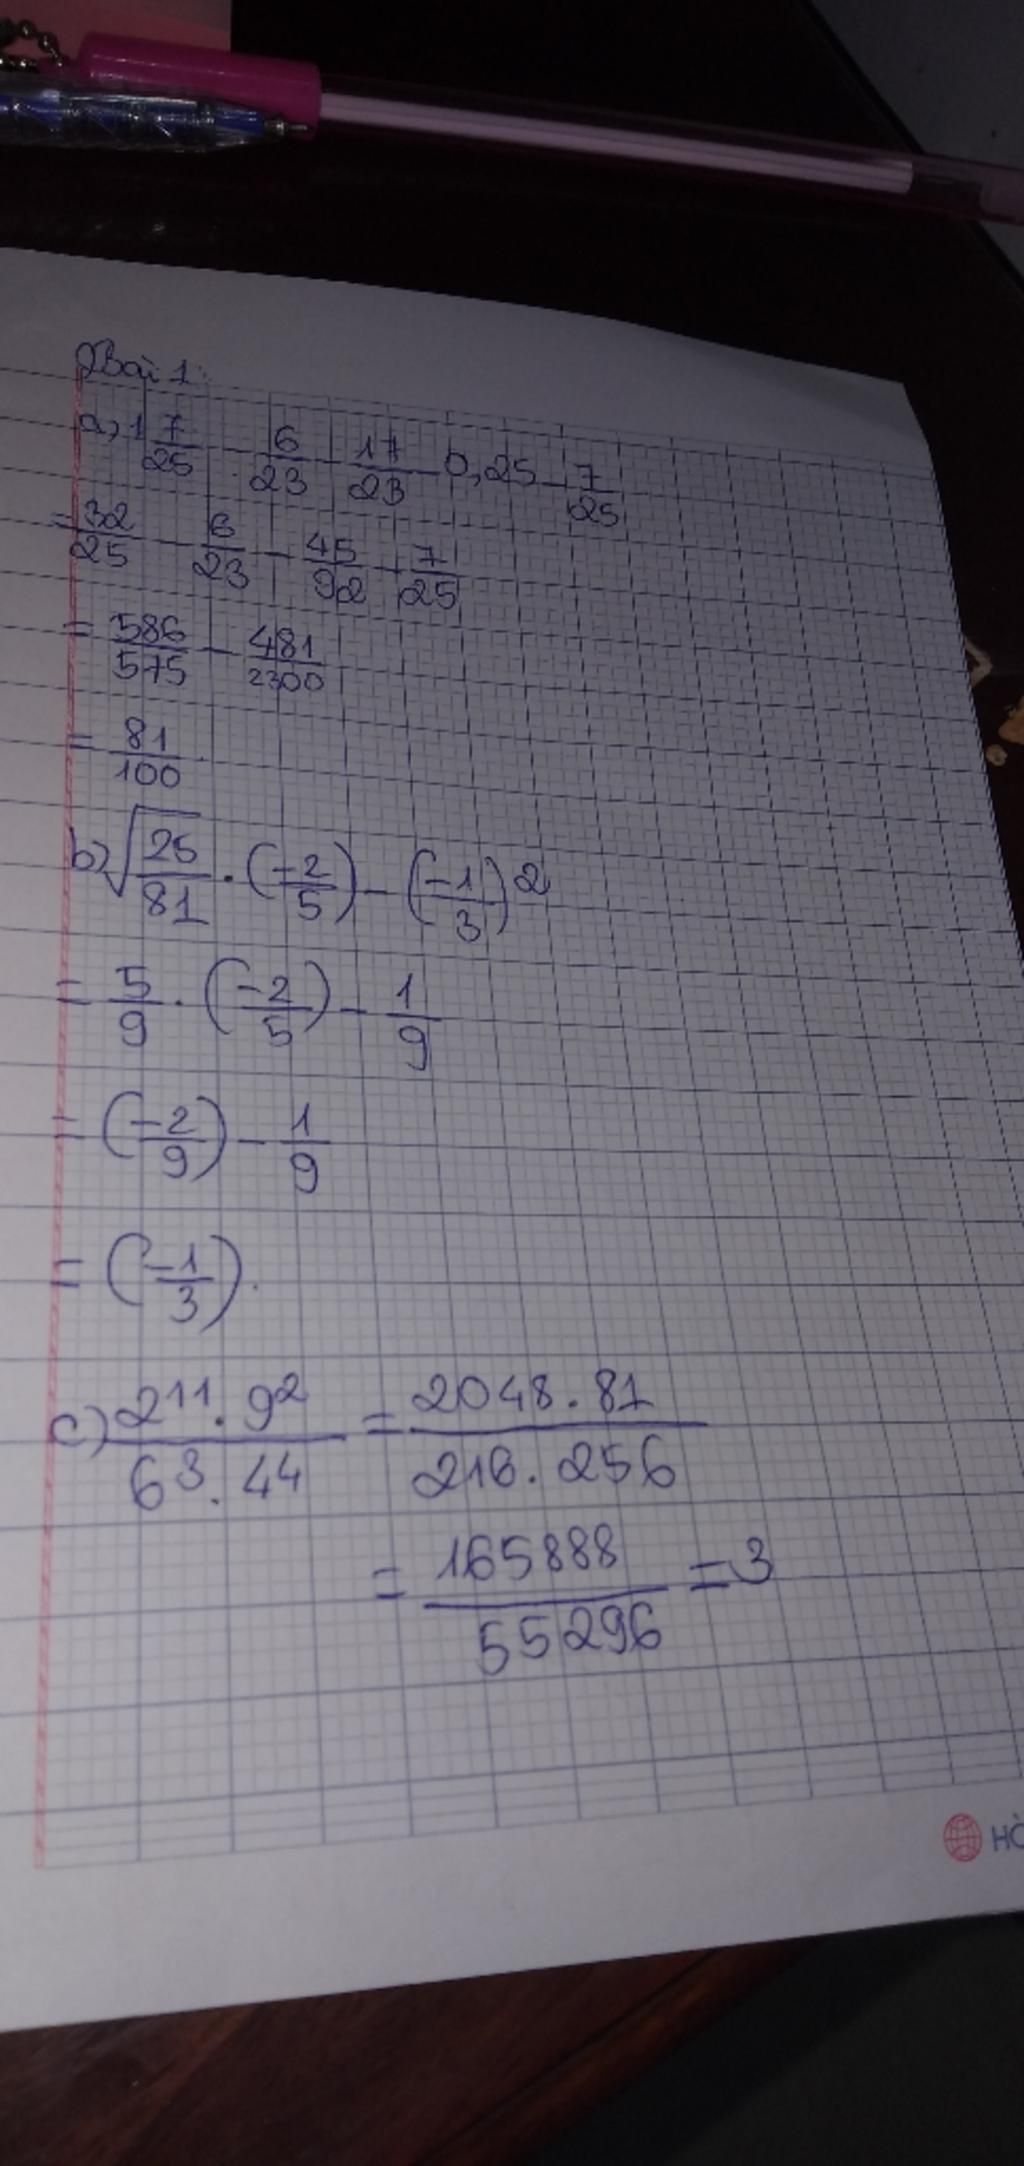 Bài 1:
a, 1 7/25 - 6/23 - 17/23 - 0,25 - 7/25
= 32/25 - 6/23 - 45/92 + 7/25
= 586/575 - 481/2300
= 81/100
b) √(25/81) . (-2/5) - (-1/3)²
= 5/9 . (-2/5) - 1/9
= (-2/9) - 1/9
= (-1/3).
c) (2¹¹ . 9²)/(6³ . 4⁴) = (2048 . 81)/(216 . 256)
= 165888/55296 = 3